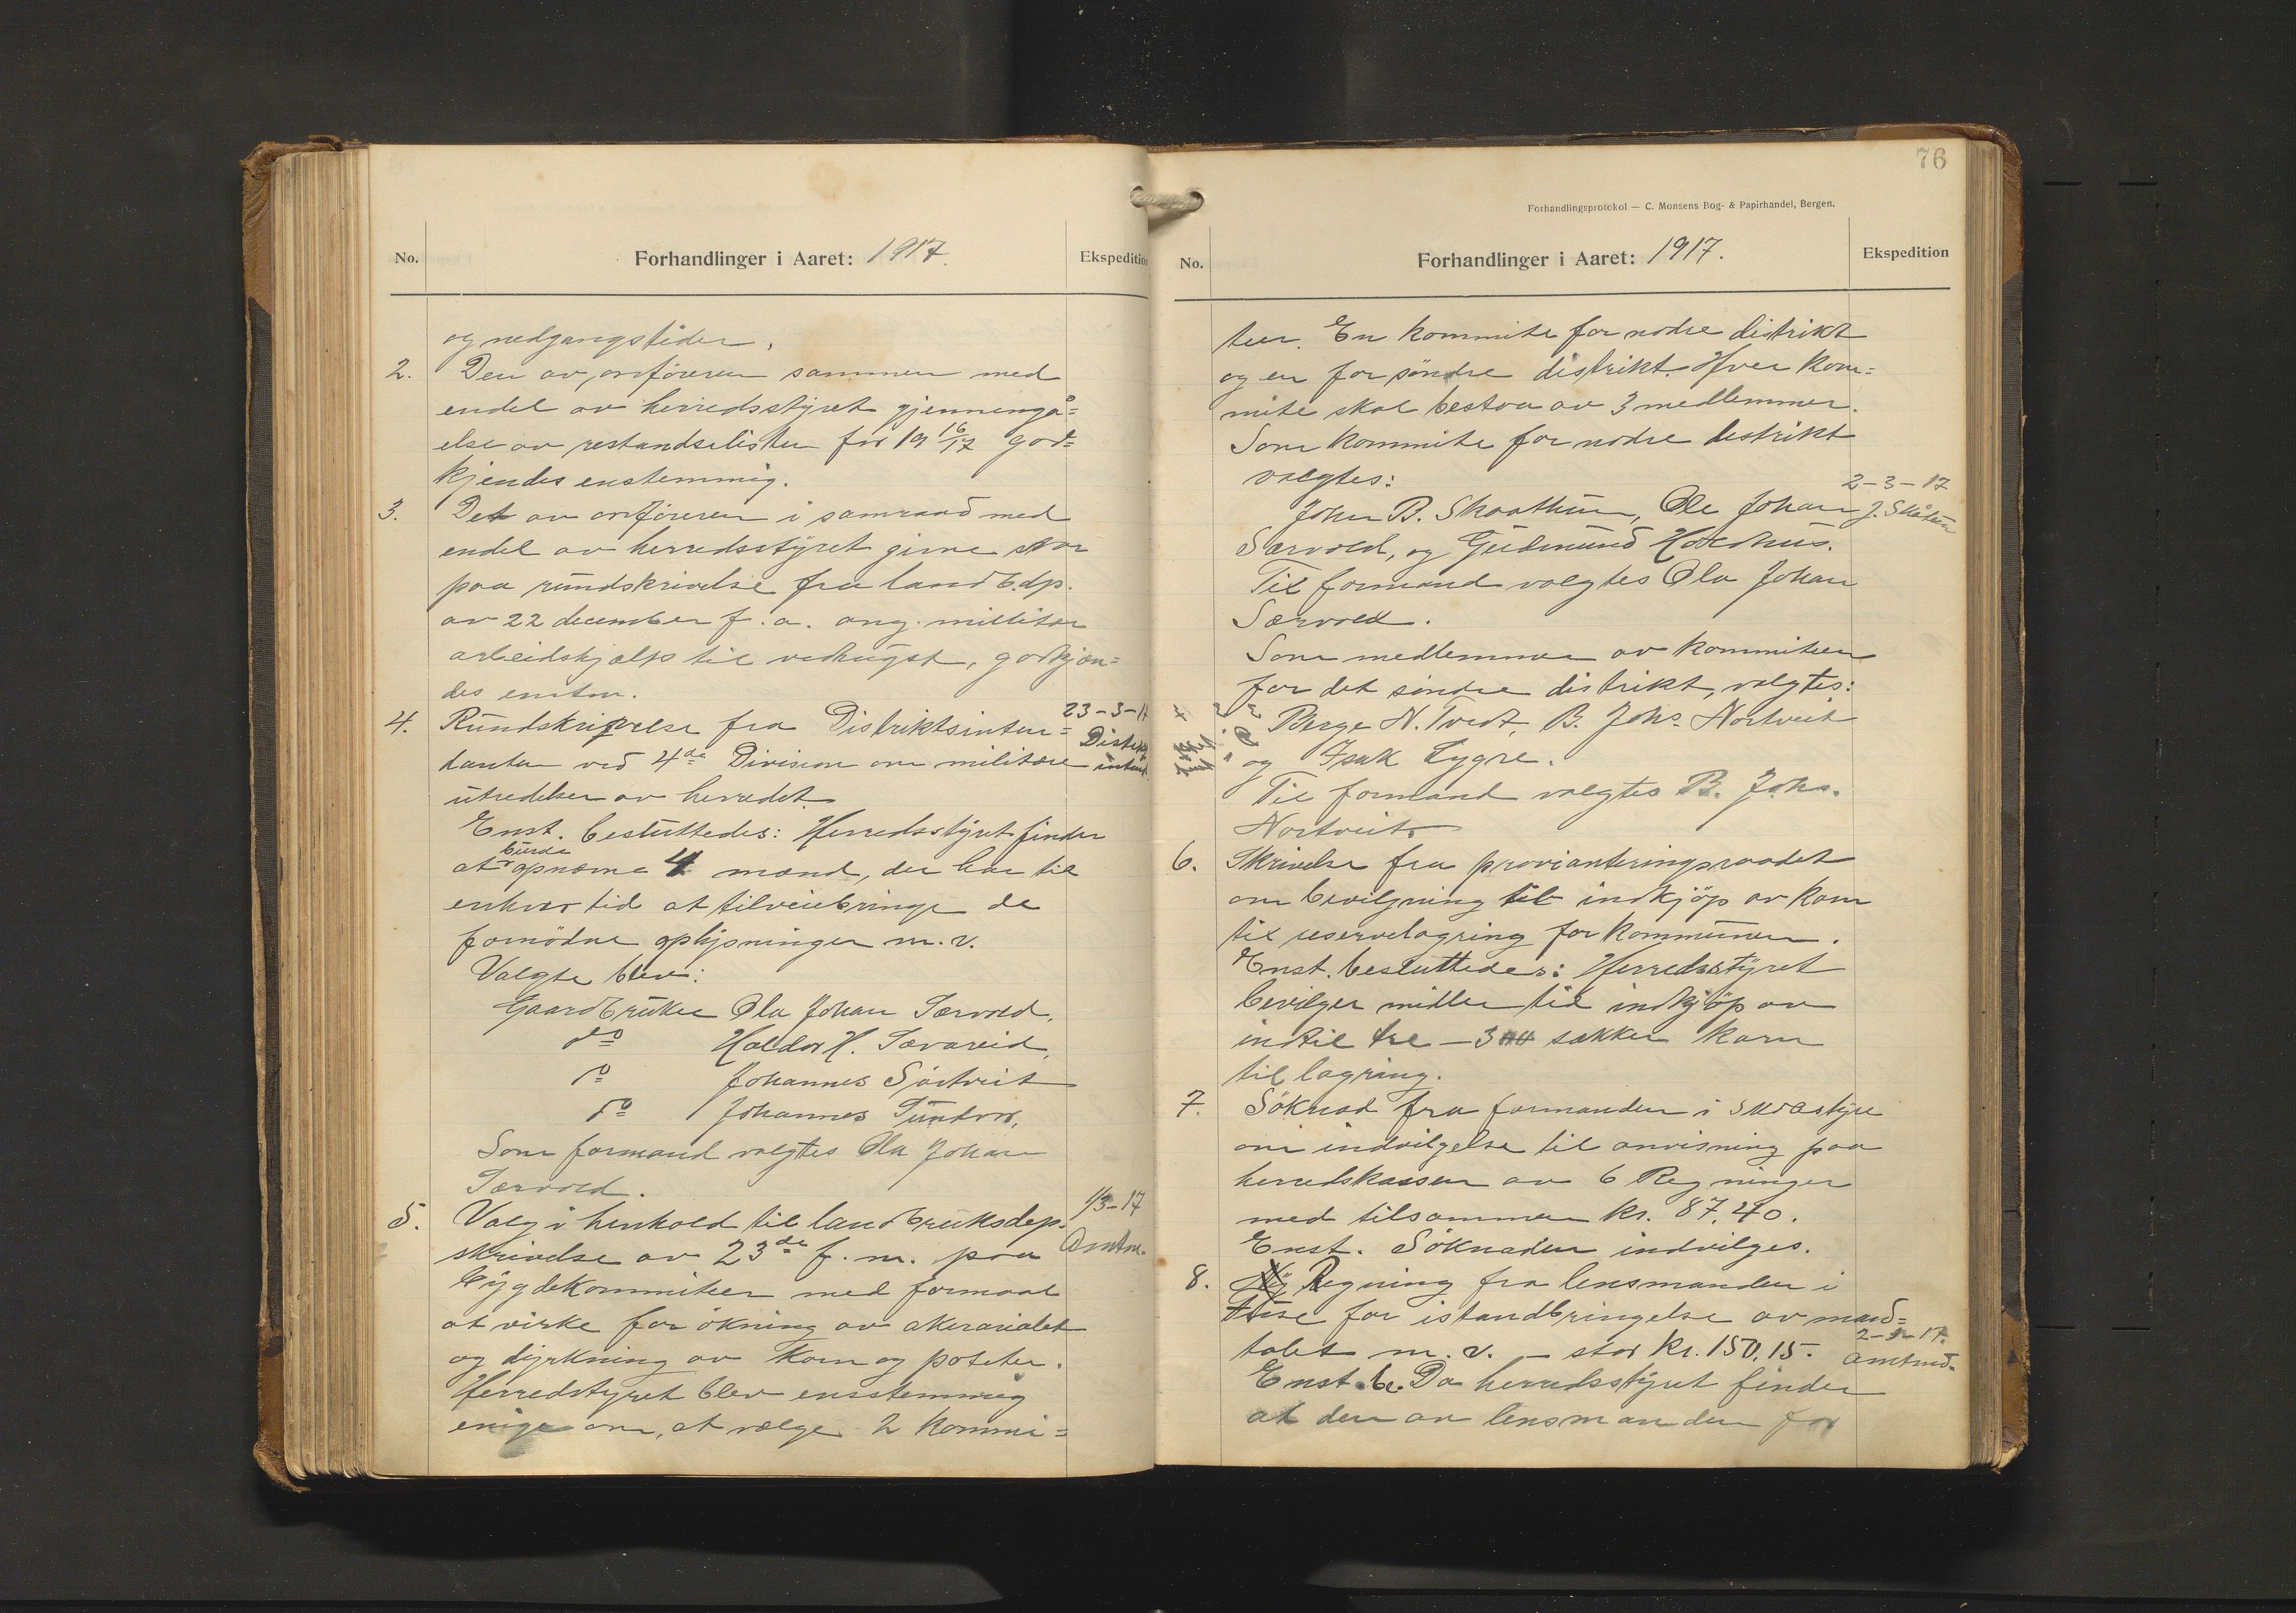 No.
Forhandlinger i Aaret: 1917.
Ekspedition
og nedgangstider.
2. Den av ordföreren sammen med
endel av herredsstyret gjennemgå=
else av restandselisten for 19 16/17 god=
kjendes enstemmig.
3. Det av ordföreren i samraad med
endel av herredsstyret givne svar
paa rundskrivelse fra landb.dp.
av 22 december f.a. ang. militær
arbeidshjælp til vedhugst, godkjen=
des enstm.
4. Rundskrivelse fra Distriktsinten=
danten ved 4de Division om militære
utredelser av herredet.
23-3-17
Distrikts
intend.
Enst. besluttedes: Herredsstyret finder
at burde opnævne 4 mænd, der har til
enhver tid at tilveiebringe de
fornödne oplysninger m.v.
Valgte blev:
Gaardbruker Ola Johan Særvold,
do Haldor H. Sævareid,
do Johannes Sörtveit
do Johannes Tundvor,
Som formand valgtes Ola Johan
Særvold.
5. Valg i henhold til landbruksdep.
skrivelse av 23de f.m. paa
1/3-17
Amtm.
bygdekommiteer med formaal
at virke for ökning av akerarialet
og dyrkning av korn og poteter.
Herredstyret blev ensstemmig
enige om, at vælge 2 kommi=
76
Forhandlingsprotokol — C. Monsens Bog- & Papirhandel, Bergen.
No.
Forhandlinger i Aaret: 1917.
Ekspedition
teer. En kommite for nodre distrikt
og en for söndre distrikt. Hver kom=
mite skal bestaa av 3 medlemmer.
Som kommite for nodre distrikt
valgtes:
2-3-17
J. Skåtun
John B. Skaathun, Ole Johan
Særvold, og Gudmund Holdhus.
Til formand valgtes Ola Johan
Særvold.
Som medlemmer av kommiteen
for det söndre distrikt, valgtes:
Berge N. Tvedt, B. Johs. Nortveit
og Isak Lygre.
Til formand valgtes B. Johs.
Nortveit.
6. Skrivelse fra provianteringsraadet
om bevilgning til indkjöp av korn
til reservelagring for kommunen.
Enst. besluttedes: Herredsstyret
bevilger midler til indkjöp av
indtil tre - 300 sækker korn
til lagring.
7. Söknad fra formanden i
om indvilgelse til anvisning paa
herredskassen av 6 Regninger
med tilsammen kr. 87.40.
Enst. Söknaden indvilges.
8. Ny Regning fra lensmanden i
Fuse for istandbringelse av mand=
talet m.v. - stor kr. 150,15.
2-3-17.
amtmd.
Enst. b. Da herredsstyret finder
at den av lensmanden for